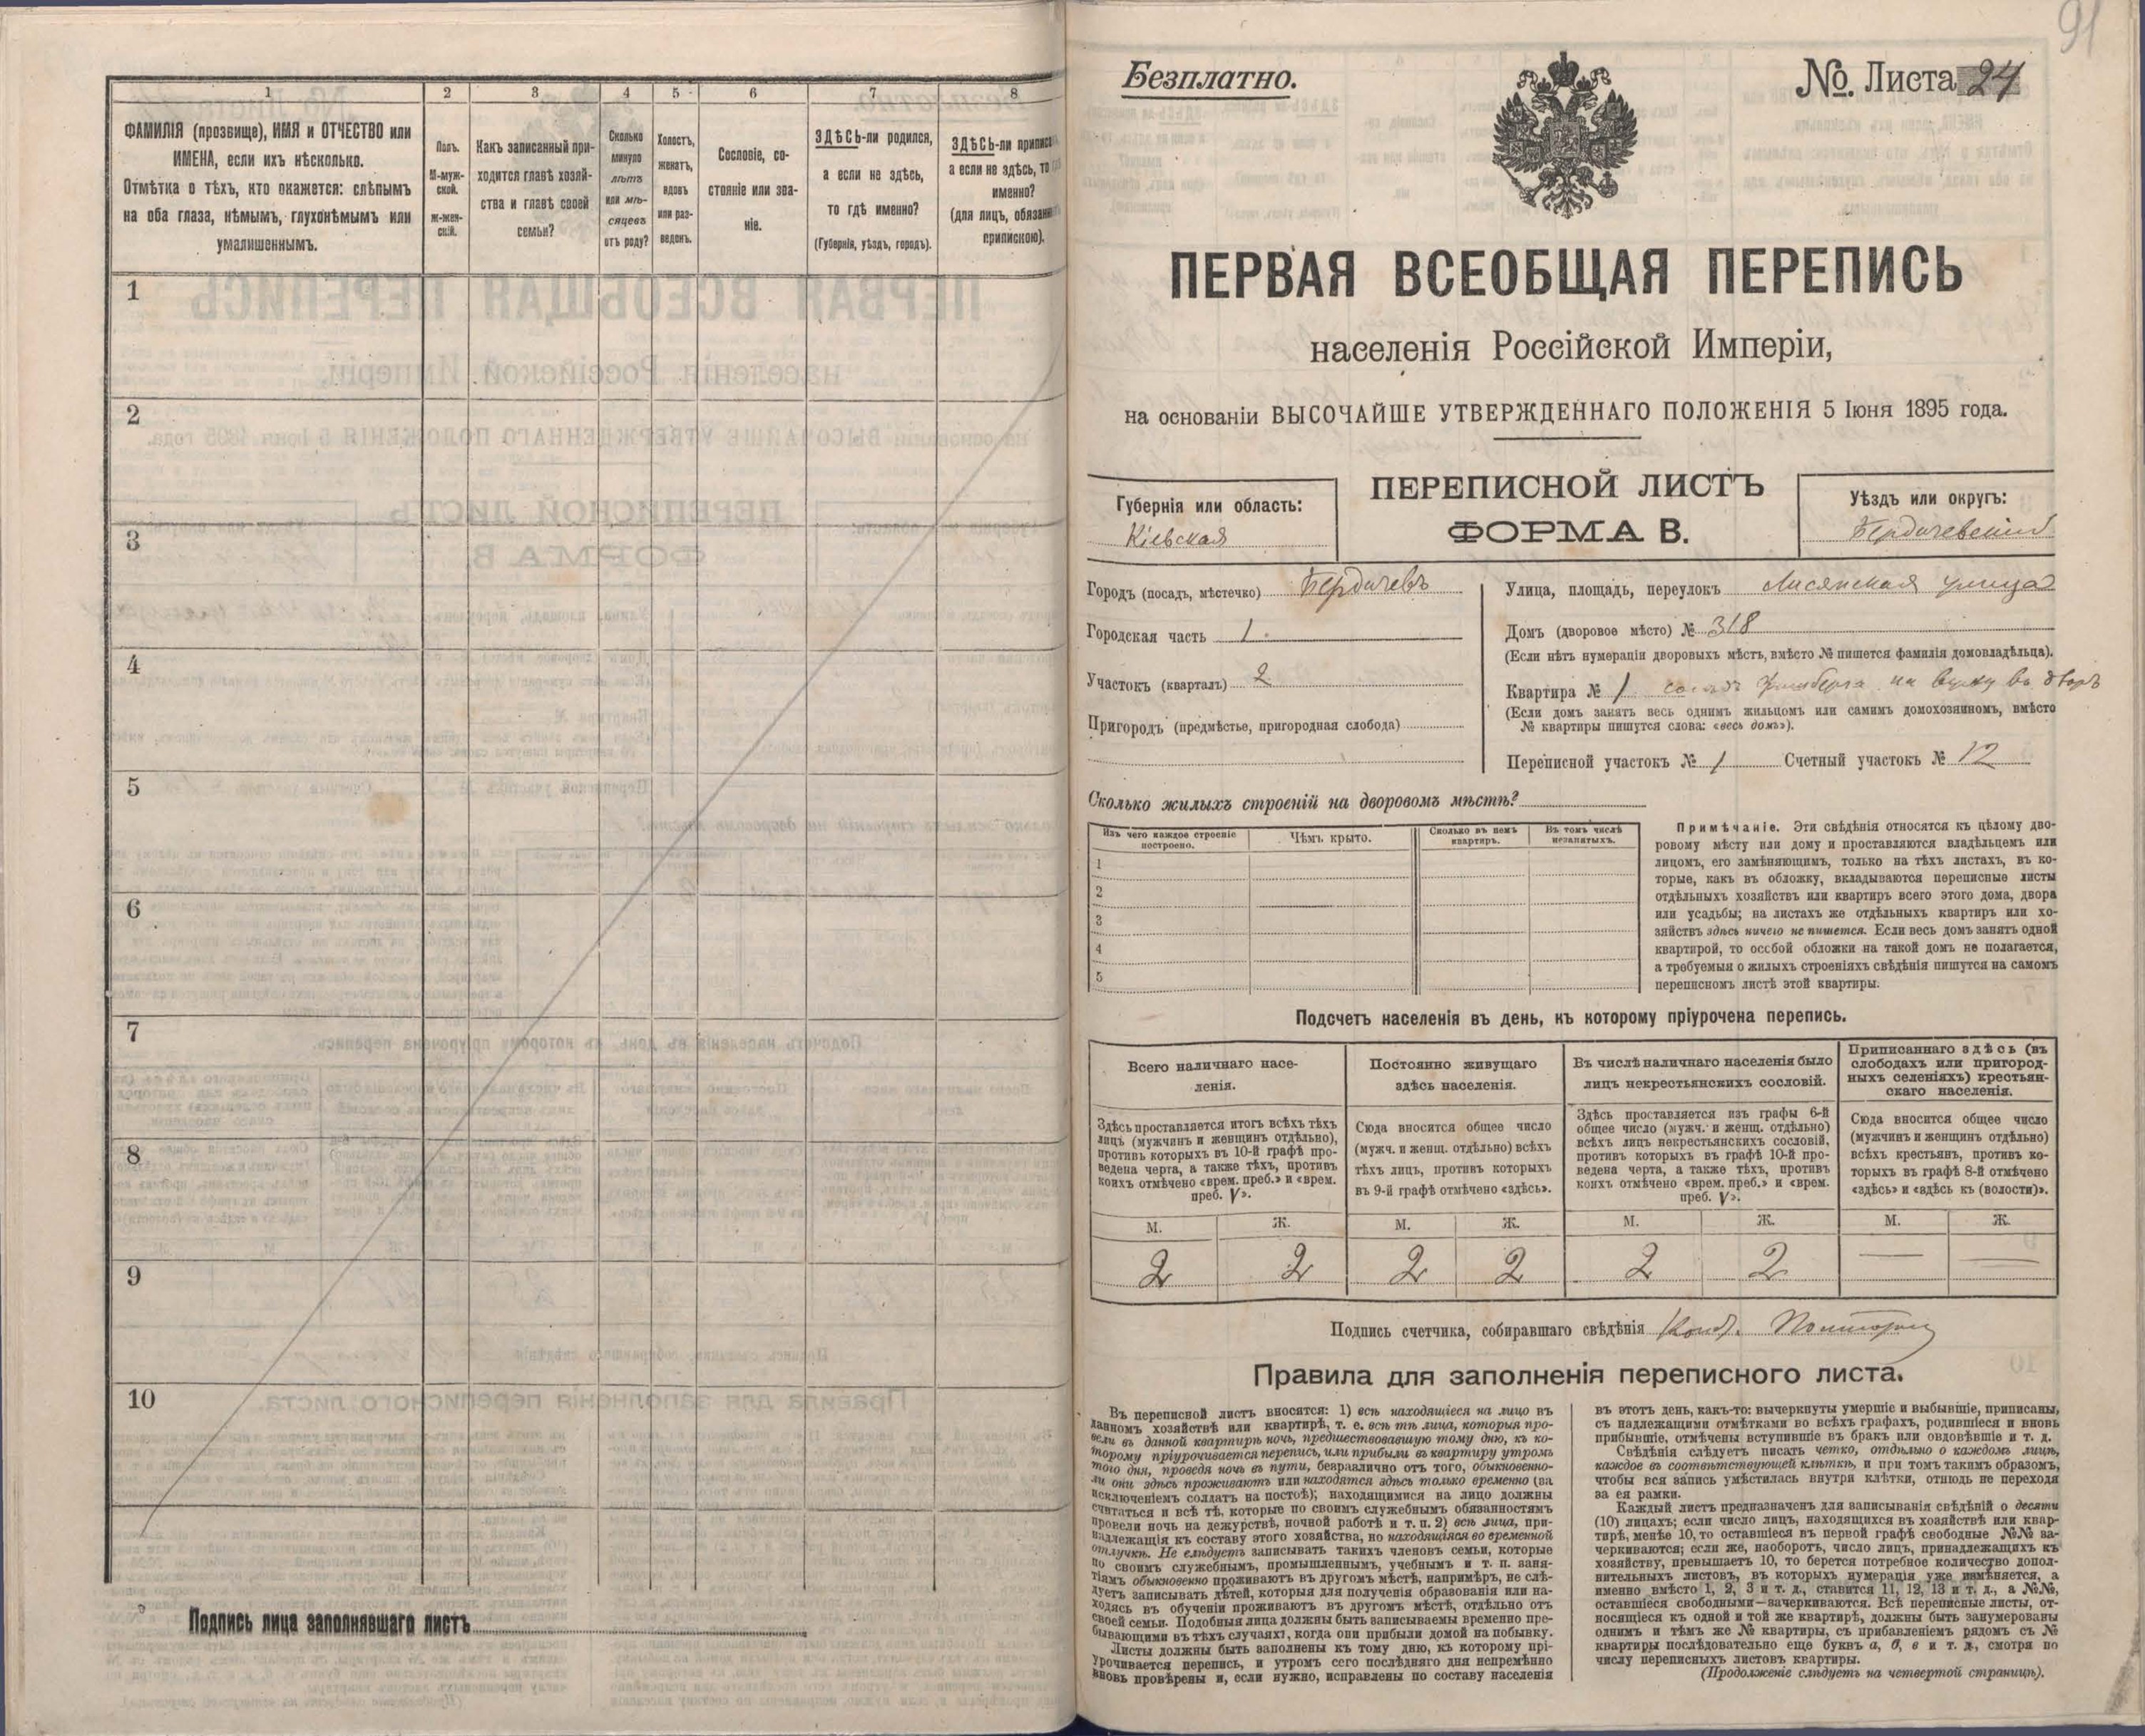 1
ФАМИЛІЯ (прозвище), ИМЯ и ОТЧЕСТВО или
ИМЕНА, если ихъ нѣсколько.
Отмѣтка о тѣхъ, кто окажется: слѣпымъ
на оба глаза, нѣмымъ, глухонѣмымъ или
умалишеннымъ.
2
Полъ.
М-муж-
ской.
ж-жен-
скій.
3
Какъ записанный при-
ходится главѣ хозяй-
ства и главѣ своей
семьи?
4
Сколько
минуло
лѣтъ
или мѣ-
сяцевъ
отъ роду?
5
Холостъ,
женатъ,
вдовъ
или раз-
веденъ.
6
Сословіе, со-
стояніе или зва-
ніе.
7
ЗДѢСЬ-ли родился,
а если не здѣсь,
то гдѣ именно?
(Губернія, уѣздъ, городъ).
8
ЗДѢСЬ-ли приписа
а если не здѣсь, то
именно?
(для лицъ, обязан
припискою).
1
2
3
4
5
6
7
8
9
10
Подпись лица заполнявшаго листъ
91
Безплатно.
№. Листа 24
ПЕРВАЯ ВСЕОБЩАЯ ПЕРЕПИСЬ
населенія Россійской Имперіи,
на основаніи ВЫСОЧАЙШЕ УТВЕРЖДЕННАГО ПОЛОЖЕНІЯ 5 Іюня 1895 года.
Губернія или область:
Кіевская
ПЕРЕПИСНОЙ ЛИСТЪ
ФОРМА В.
Уѣздъ или округъ:
Бердичевскій
Городъ (посадъ, мѣстечко) Бердичевъ
Городская часть 1.
Участокъ (кварталъ) 2
Пригородъ (предмѣстье, пригородная слобода)
Улица, площадь, переулокъ Лисянская улица
Домъ (дворовое мѣсто) № 318
(Если нѣтъ нумераціи дворовыхъ мѣстъ, вмѣсто № пишется фамилія домовладѣльца).
Квартира № 1 во дворѣ
(Если домъ занятъ весь однимъ жильцомъ или самимъ домохозяиномъ, вмѣсто
№ квартиры пишутся слова: «весь домъ»).
Переписной участокъ № 1 Счетный участокъ № 12
Сколько жилыхъ строеній на дворовомъ мѣстѣ?
Изъ чего каждое строеніе
построено.
Чѣмъ крыто.
Сколько въ немъ
квартиръ.
Въ томъ числѣ
незанятыхъ.
1
2
3
4
5
Примѣчаніе. Эти свѣдѣнія относятся къ цѣлому дво-
ровому мѣсту или дому и проставляются владѣльцемъ или
лицомъ, его замѣняющимъ, только на тѣхъ листахъ, въ ко-
торые, какъ въ обложку, вкладываются переписные листы
отдѣльныхъ хозяйствъ или квартиръ всего этого дома, двора
или усадьбы; на листахъ же отдѣльныхъ квартиръ или хо-
зяйствъ здѣсь ничего не пишется. Если весь домъ занятъ одной
квартирой, то особой обложки на такой домъ не полагается,
а требуемыя о жилыхъ строеніяхъ свѣдѣнія пишутся на самомъ
переписномъ листѣ этой квартиры.
Подсчетъ населенія въ день, къ которому пріурочена перепись.
Всего наличнаго насе-
ленія.
Здѣсь проставляется итогъ всѣхъ тѣхъ
лицъ (мужчинъ и женщинъ отдѣльно),
противъ которыхъ въ 10-й графѣ про-
ведена черта, а также тѣхъ, противъ
коихъ отмѣчено «врем. преб.» и «врем.
преб. V».
Постоянно живущаго
здѣсь населенія.
Сюда вносится общее число
(мужч. и женщ. отдѣльно) всѣхъ
тѣхъ лицъ, противъ которыхъ
въ 9-й графѣ отмѣчено «здѣсь».
Въ числѣ наличнаго населенія было
лицъ некрестьянскихъ сословій.
Здѣсь проставляется изъ графы 6-й
общее число (мужч. и женщ. отдѣльно)
всѣхъ лицъ некрестьянскихъ сословій,
противъ которыхъ въ графѣ 10-й про-
ведена черта, а также тѣхъ, противъ
коихъ отмѣчено «врем. преб.» и «врем.
преб. V».
Приписаннаго здѣсь (въ
слободахъ или пригород-
ныхъ селеніяхъ) крестьян-
скаго населенія.
Сюда вносится общее число
(мужчинъ и женщинъ отдѣльно)
всѣхъ крестьянъ, противъ ко-
торыхъ въ графѣ 8-й отмѣчено
«здѣсь» и «здѣсь къ (волости)».
М. Ж. М. Ж. М. Ж. М. Ж.
2 2 2 2 2 2 — —
Подпись счетчика, собиравшаго свѣдѣнія
Правила для заполненія переписного листа.
Въ переписной листъ вносятся: 1) всѣ находящіеся на лицо въ
данномъ хозяйствѣ или квартирѣ, т. е. всѣ тѣ лица, которыя про-
вели въ данной квартирѣ ночь, предшествовавшую тому дню, къ ко-
торому пріурочивается перепись, или прибыли въ квартиру утромъ
того дня, проведя ночь въ пути, безразлично отъ того, обыкновенно-
ли они здѣсь проживаютъ или находятся здѣсь только временно (за
исключеніемъ солдатъ на постоѣ); находящимися на лицо должны
считаться и всѣ тѣ, которые по своимъ служебнымъ обязанностямъ
провели ночь на дежурствѣ, ночной работѣ и т. п. 2) всѣ лица, при-
надлежащія къ составу этого хозяйства, но находящіяся во временной
отлучкѣ. Не слѣдуетъ записывать такихъ членовъ семьи, которые
по своимъ служебнымъ, промышленнымъ, учебнымъ и т. п. заня-
тіямъ обыкновенно проживаютъ въ другомъ мѣстѣ, напримѣръ, не слѣ-
дуетъ записывать дѣтей, которыя для полученія образованія или на-
ходясь въ обученіи проживаютъ въ другомъ мѣстѣ, отдѣльно отъ
своей семьи. Подобныя лица должны быть записываемы временно пре-
бывающими въ тѣхъ случаяхъ, когда они прибыли домой на побывку.
Листы должны быть заполнены къ тому дню, къ которому прі-
урочивается перепись, и утромъ сего послѣдняго дня непремѣнно
вновь провѣрены и, если нужно, исправлены по составу населенія
въ этотъ день, какъ-то: вычеркнуты умершіе и выбывшіе, приписаны,
съ надлежащими отмѣтками во всѣхъ графахъ, родившіеся и вновь
прибывшіе, отмѣчены вступившіе въ бракъ или овдовѣвшіе и т. д.
Свѣдѣнія слѣдуетъ писать четко, отдѣльно о каждомъ лицѣ,
каждое въ соотвѣтствующей клѣткѣ, и при томъ такимъ образомъ,
чтобы вся запись умѣстилась внутри клѣтки, отнюдь не переходя
за ея рамки.
Каждый листъ предназначенъ для записыванія свѣдѣній о десяти
(10) лицахъ; если число лицъ, находящихся въ хозяйствѣ или квар-
тирѣ, менѣе 10, то оставшіеся въ первой графѣ свободные №№ за-
черкиваются; если же, наоборотъ, число лицъ, принадлежащихъ къ
хозяйству, превышаетъ 10, то берется потребное количество допол-
нительныхъ листовъ, въ которыхъ нумерація уже измѣняется, а
именно вмѣсто 1, 2, 3 и т. д., ставится 11, 12, 13 и т. д., а №№,
оставшіеся свободными—зачеркиваются. Всѣ переписные листы, от-
носящіеся къ одной и той же квартирѣ, должны быть занумерованы
однимъ и тѣмъ же № квартиры, съ прибавленіемъ рядомъ съ №
квартиры послѣдовательно еще буквъ а, б, в и т. д., смотря по
числу переписныхъ листовъ квартиры.
(Продолженіе слѣдуетъ на четвертой страницѣ).